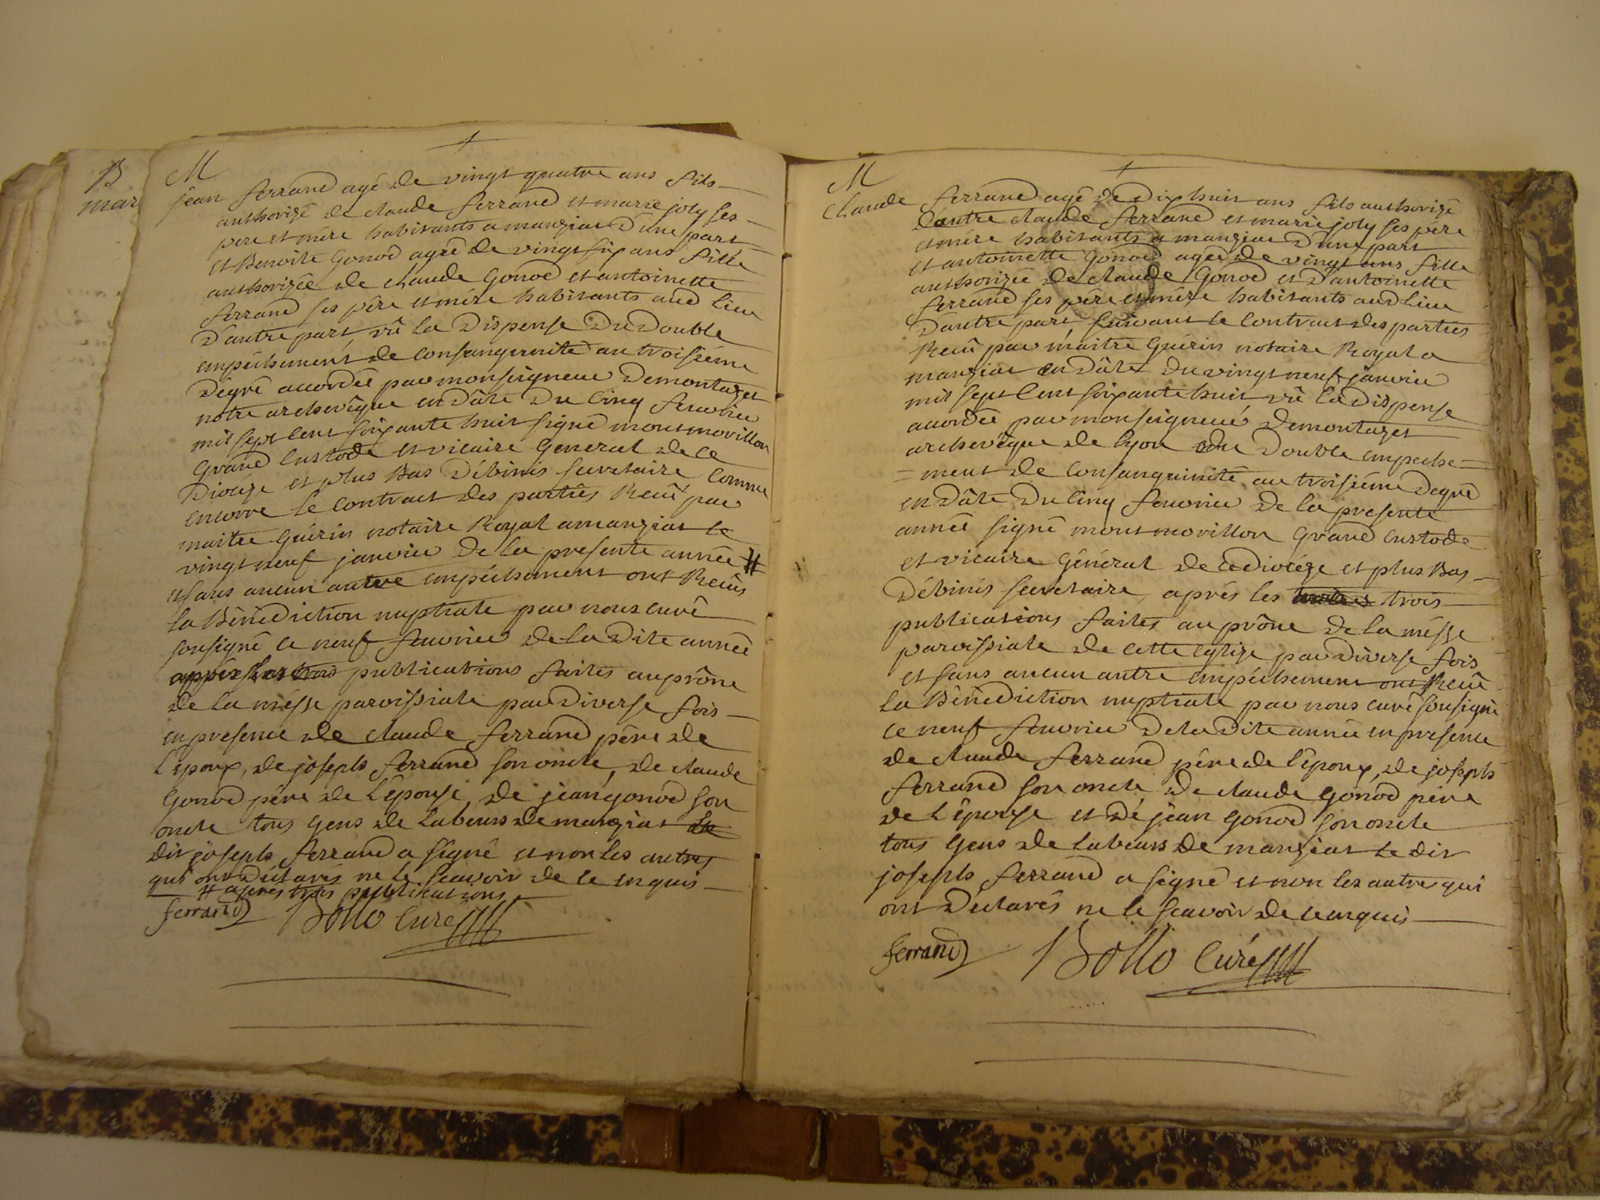 B
mar
M
jean ferrand agé de vingt quatre ans fils
authorizé de claude ferrand et marie joly ses
pere et mére habitants a manziat d'une part
et Benoite Gonod agéé de vingt six ans fille
authorizéé de claude Gonod et antoinette
ferrand ses pére et mére habitants aud lieu
d'autre part vû la Dispense Du Double
empéchement de consanguinité au troisiéme
Dégré accordéé par monseigneur Demontazet
notre archevêque en Dâte Du cinq fevrier
mil sept cent soixante huit signé montmorillon
Grand Custode et vicaire General de ce
Diocéze et plus Bas Débinis secretaire comme
encorre le contract des partiés Recû par
maitre Guérin notaire Royal a manziat le
vingt neuf janvier de la presente année #
et sans aucun autre empéchement ont Recûs
la Bénédiction nuptiale par nous curé
soussigné ce neuf fevrier de la Dite année
publications faites au prône
de la mésse paroissiale par Diverse fois
en presence de claude ferrand pére de
l'époux, de joseph ferrand son oncle, de claude
Gonod pére de l'épouse, de jean gonod son
oncle tous Gens de Labeurs de manziat le
dit joseph ferrand a signé et non les autres
qui ont Déclarés ne le scavoir de ce enquis
# aprés trois publications
ferrand Bollo Curé
M
Claude ferrand agé de Dix huit ans fils authorizé
D'autre claude ferrand et marie joly ses pére
et mére habitants a manziat D'une part
et antoinette Gonod agéé de vingt ans fille
authorizéé de claude Gonod et D'antoinette
ferrand ses pére et mére habitants aud lieu
D'autre part suivant le contract des parties
Recû par maitre Guerin notaire Royal a
manziat en Dâte Du vingt neuf janvier
mil sept cent soixante huit vû la Dispense
accordéé par monseigneur Demontazet
archevêque de Lyon du Double empeche=
=ment de consanguinité au troisiéme Degré
en Dâte Du cinq fevrier de la presente
année signé montmorillon Grand Custode
et vicaire Général de ce diocéze et plus Bas
Débinis secretaire, aprés les trois
publications faites au prône de la mésse
paroissiale de cette eglise par Diverse fois
et sans aucun autre empéchement ont Recû
la Bénédiction nuptiale par nous curé soussigné
ce neuf fevrier De la Dite année en presence
de claude ferrand pére de l'époux, de joseph
ferrand son oncle De claude Gonod pére
de l'épouse et Dé jean Gonod son oncle
tous Gens de Labeurs De manziat le dit
joseph ferrand a signé et non les autres qui
ont Declarés ne le scavoir de ce enquis
ferrand Bollo Curé